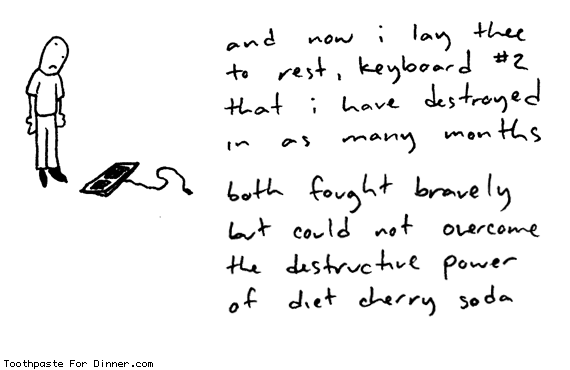 and now i lay thee
to rest, keyboard #2
that i have destroyed
in as many months
both fought bravely
but could not overcome
the destructive power
of diet cherry soda
Toothpaste For Dinner.com